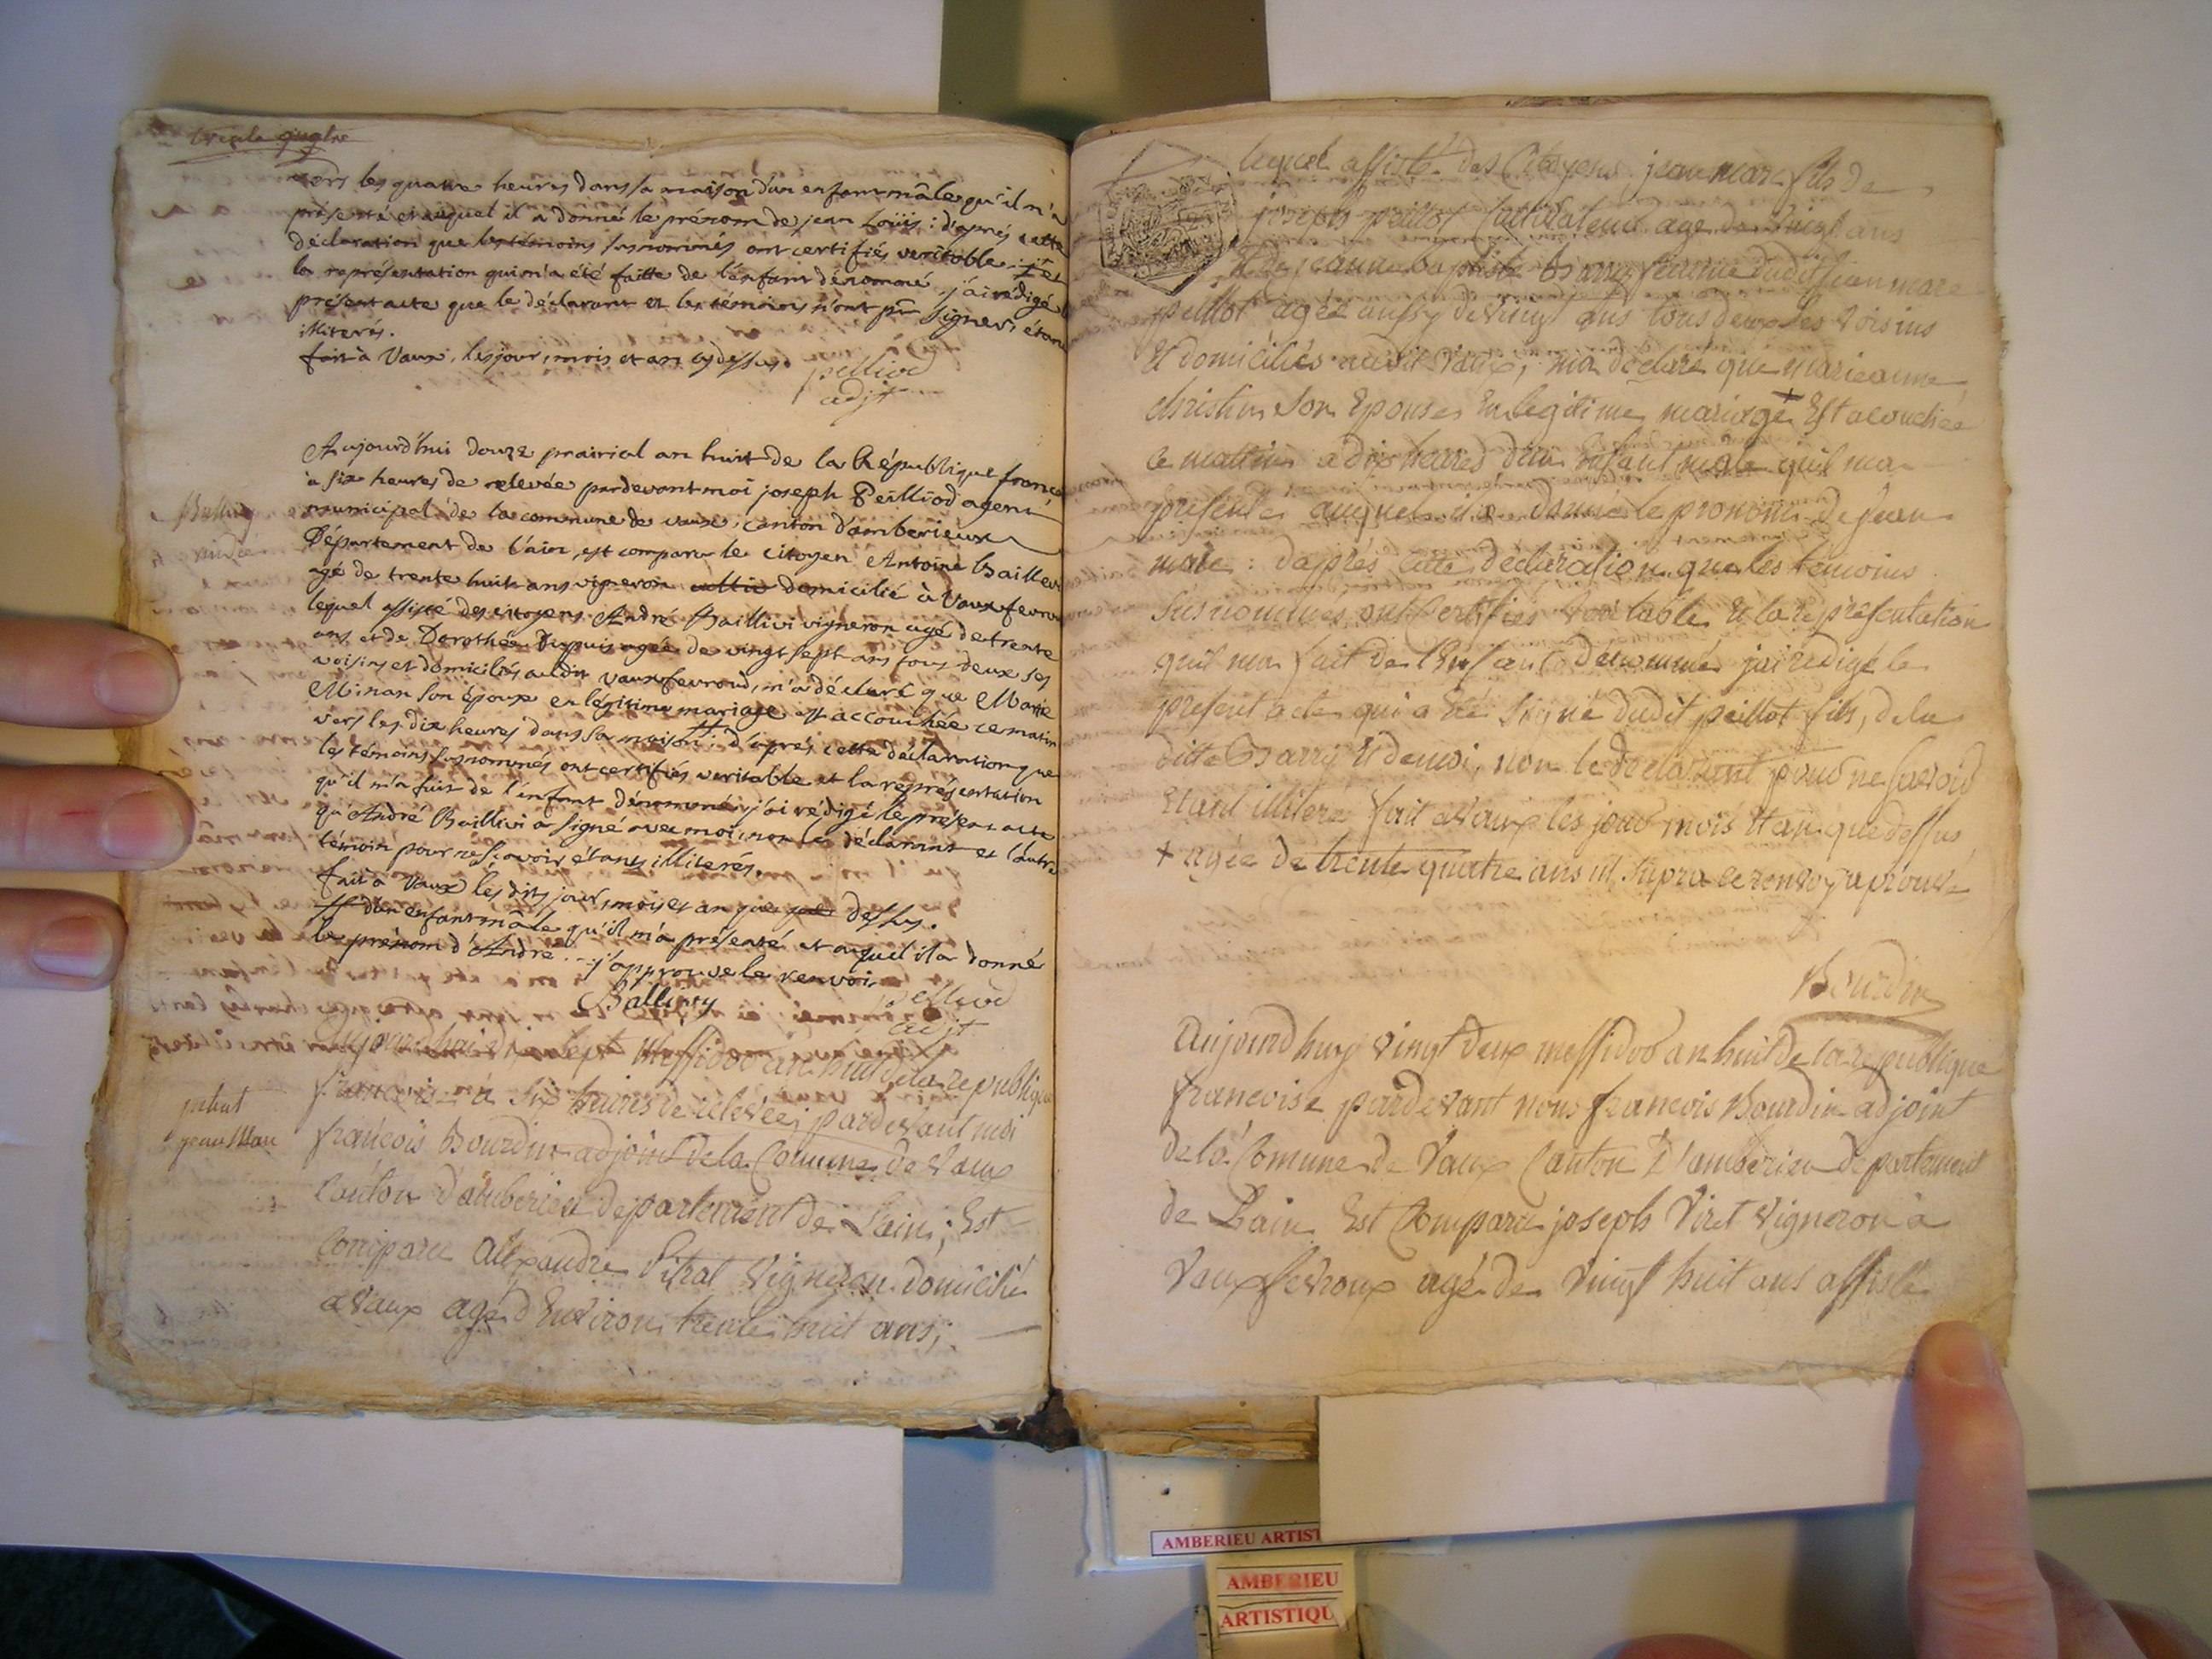 vers les quatre heures dans sa maison d'un enfant mâle qu'il m'a
présenté et auquel il a donné le prénom de jean Louis : d'aprés cette
déclaration que les témoins susnommés ont certifiés veritable et
la représentation qui m'a été faitte de l'enfant dénommé, j'ai rédigé le
présent acte que le déclarant et les témoins n'ont pû signer, étant
illiterés.
fait à Vaux, les jour, mois et an cydessus.
peilliod
adjt
Aujourd'hui douze prairial an huit de la République france
à six heures de relevée pardevant moi joseph Peilliod agent
municipal de la commune de vaux, canton d'amberieux
Département de l'ain, est comparu le citoyen Antoine Baillevi
agé de trente huit ans vigneron domicilié à Vauxfevrou
lequel assisté des citoyens André Baillivi vigneron agé de trente
ans et de Dorothée Dupuis agée de vingt sept ans tous deux ses
voisins et domiciliés audit vauxfevroud, m'a déclaré que Marie
Minan son épouse en légitime mariage est accouchée ce matin
vers les dix heures dans sa maison : d'aprés cette déclaration que
les témoins susnommés ont certifiés veritable et la représentation
qu'il m'a fait de l'enfant dénommé j'ai rédigé le présent acte
qu'André Baillivi a signé avec moi, non le déclarant et l'autre
témoin pour ne sçavoir étants illiterés.
fait à Vaux les dits jour, mois et an que dessus.
d'un enfant mâle qu'il m'a présenté et auquel il a donné
le prénom d'André. j'approuve le renvoi
Ballivy
peilliod
adjt
Aujourdhui sept Messidor an huit de la republique
francoise à six heures de relevée; pardevant moi
françois Bourdin adjoint de la Commune de vaux
Canton d'amberieu departement de Lain; Est
Comparu alexandre Pitrat vigneron domicilié
a vaux agé d'Environ trente huit ans;
pitrat
jean Marc
lequel assisté des Citoyens jean marc fils de
joseph peillot Cultivateur agé de vingt ans
Et de jeanne baptiste Barry femme dudit jean marc
peillot agée aussy de vingt ans tous deux ses voisins
Et domiciliés audit vaux, ma declaré que marieanne
christin son Epouse En legitime mariage + Est acouchée
ce mattin a dix heures d'un Enfant male quil ma
presenté auquel il a donné le pronom de jean
marc : daprés cette declaration que les temoins
susnommés ont Certifiés veritable Et la representation
quil ma fait de l'Enfant denommé jai redigé le
present acte qui a été signé dudit peillot fils, de la
ditte Barry Et de moi, non le declarant pour ne savoir
Etant illiteré fait a vaux les jour mois Et an que dessus
+ agée de trente quatre ans ut supra ce renvoy aprouvé
Bourdin
Aujourd huy vingt deux messidor an huit de la republique
francoise pardevant nous francois Bourdin adjoint
de la Comune de Vaux Canton D'amberieu departement
de Lain Est Comparu joseph Viret vigneron à
Vaux fevroux agé de vingt huit ans assisté
AMBERIEU ARTIST
AMBERIEU
ARTISTIQU